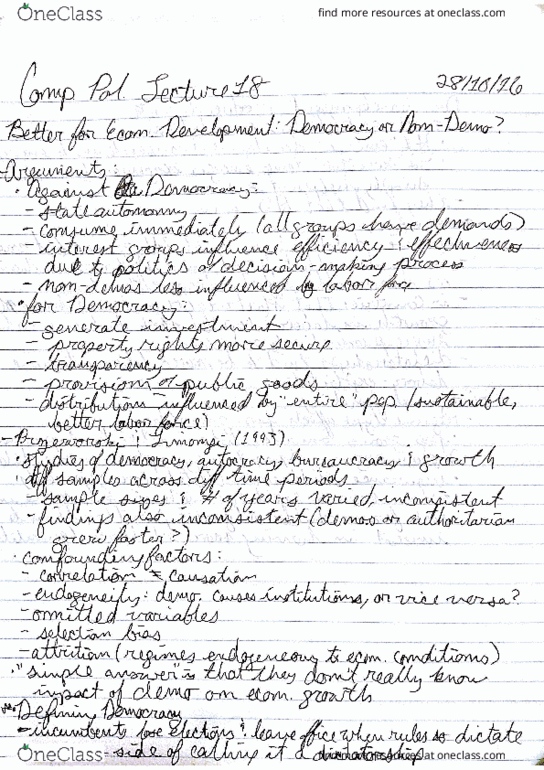 OneClass
find more resources at oneclass.com
Comp Pol Lecture 18
28/10/16
Better for Econ. Development: Democracy or Non-Demo?
-Arguments:
• Against Democracy:
- state autonomy
- consume immediately (all groups have demands)
- interest groups influence efficiency & effectiveness
due to politics of decision-making process
- non-demos less influenced by labor force
• for Democracy:
- generate investment
- property rights more secure
- transparency
- provision of public goods
- distribution influenced by "entire" pop (sustainable,
better labor force)
- Przeworski & Limongi (1993)
• studies of democracy, autocracy, bureaucracy & growth
• diff samples across diff time periods
- sample sizes & # of years varied, inconsistent
- findings also inconsistent (demos or authoritarian
grew faster?)
• confounding factors:
- correlation ≠ causation
- endogeneity: demo. causes institutions, or vice versa?
- ommitted variables
- selection bias
- attrition (regimes endogeneous to econ. conditions)
• "simple answer" is that they don't really know
impact of demo on econ. growth
Defining Democracy
- incumbents lose elections & leave office when rules so dictate
- side of calling it a dictatorship
OneClass
find more resources at oneclass.com